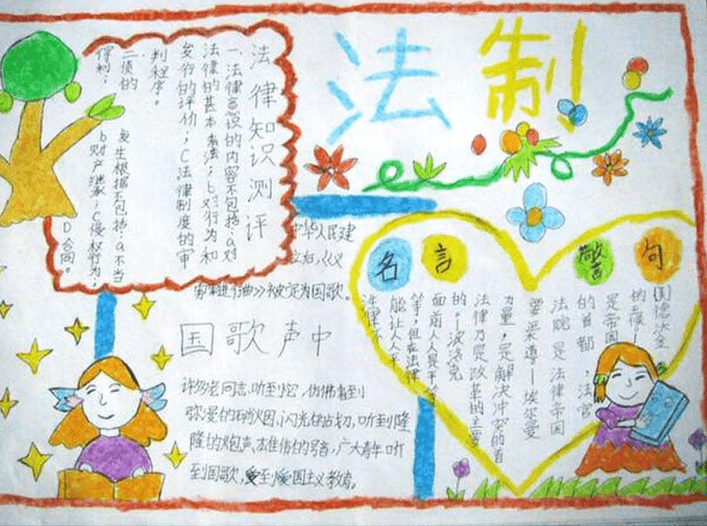 法制
法律知识测评
一、法律意识的内容不包括:a对
法律的基本看法;b对行为和
发行的评价;C法律制度的审
判程序。
二.债的
发生根据不包括:a不当
得利;
b财产继承;C侵权行为;
D合同。
中华人民建
立后,《义
勇军进行曲》被定为国歌。
国歌声中
许多老同志,听到它,仿佛看到
弥漫的硝烟,闪光的
战切,听到隆
隆的炮声,雄伟的号音,广大青年听
到国歌,受到爱国主义教育。
名言警句
法院是法律帝国
的首都,法官
是帝国
的王侯
要柔道——埃尔曼
力量,是解决冲突的首
法律乃是改革的主要
的。——波洛克
面前人人是平等
等,但在法律
能让人人平
法律不